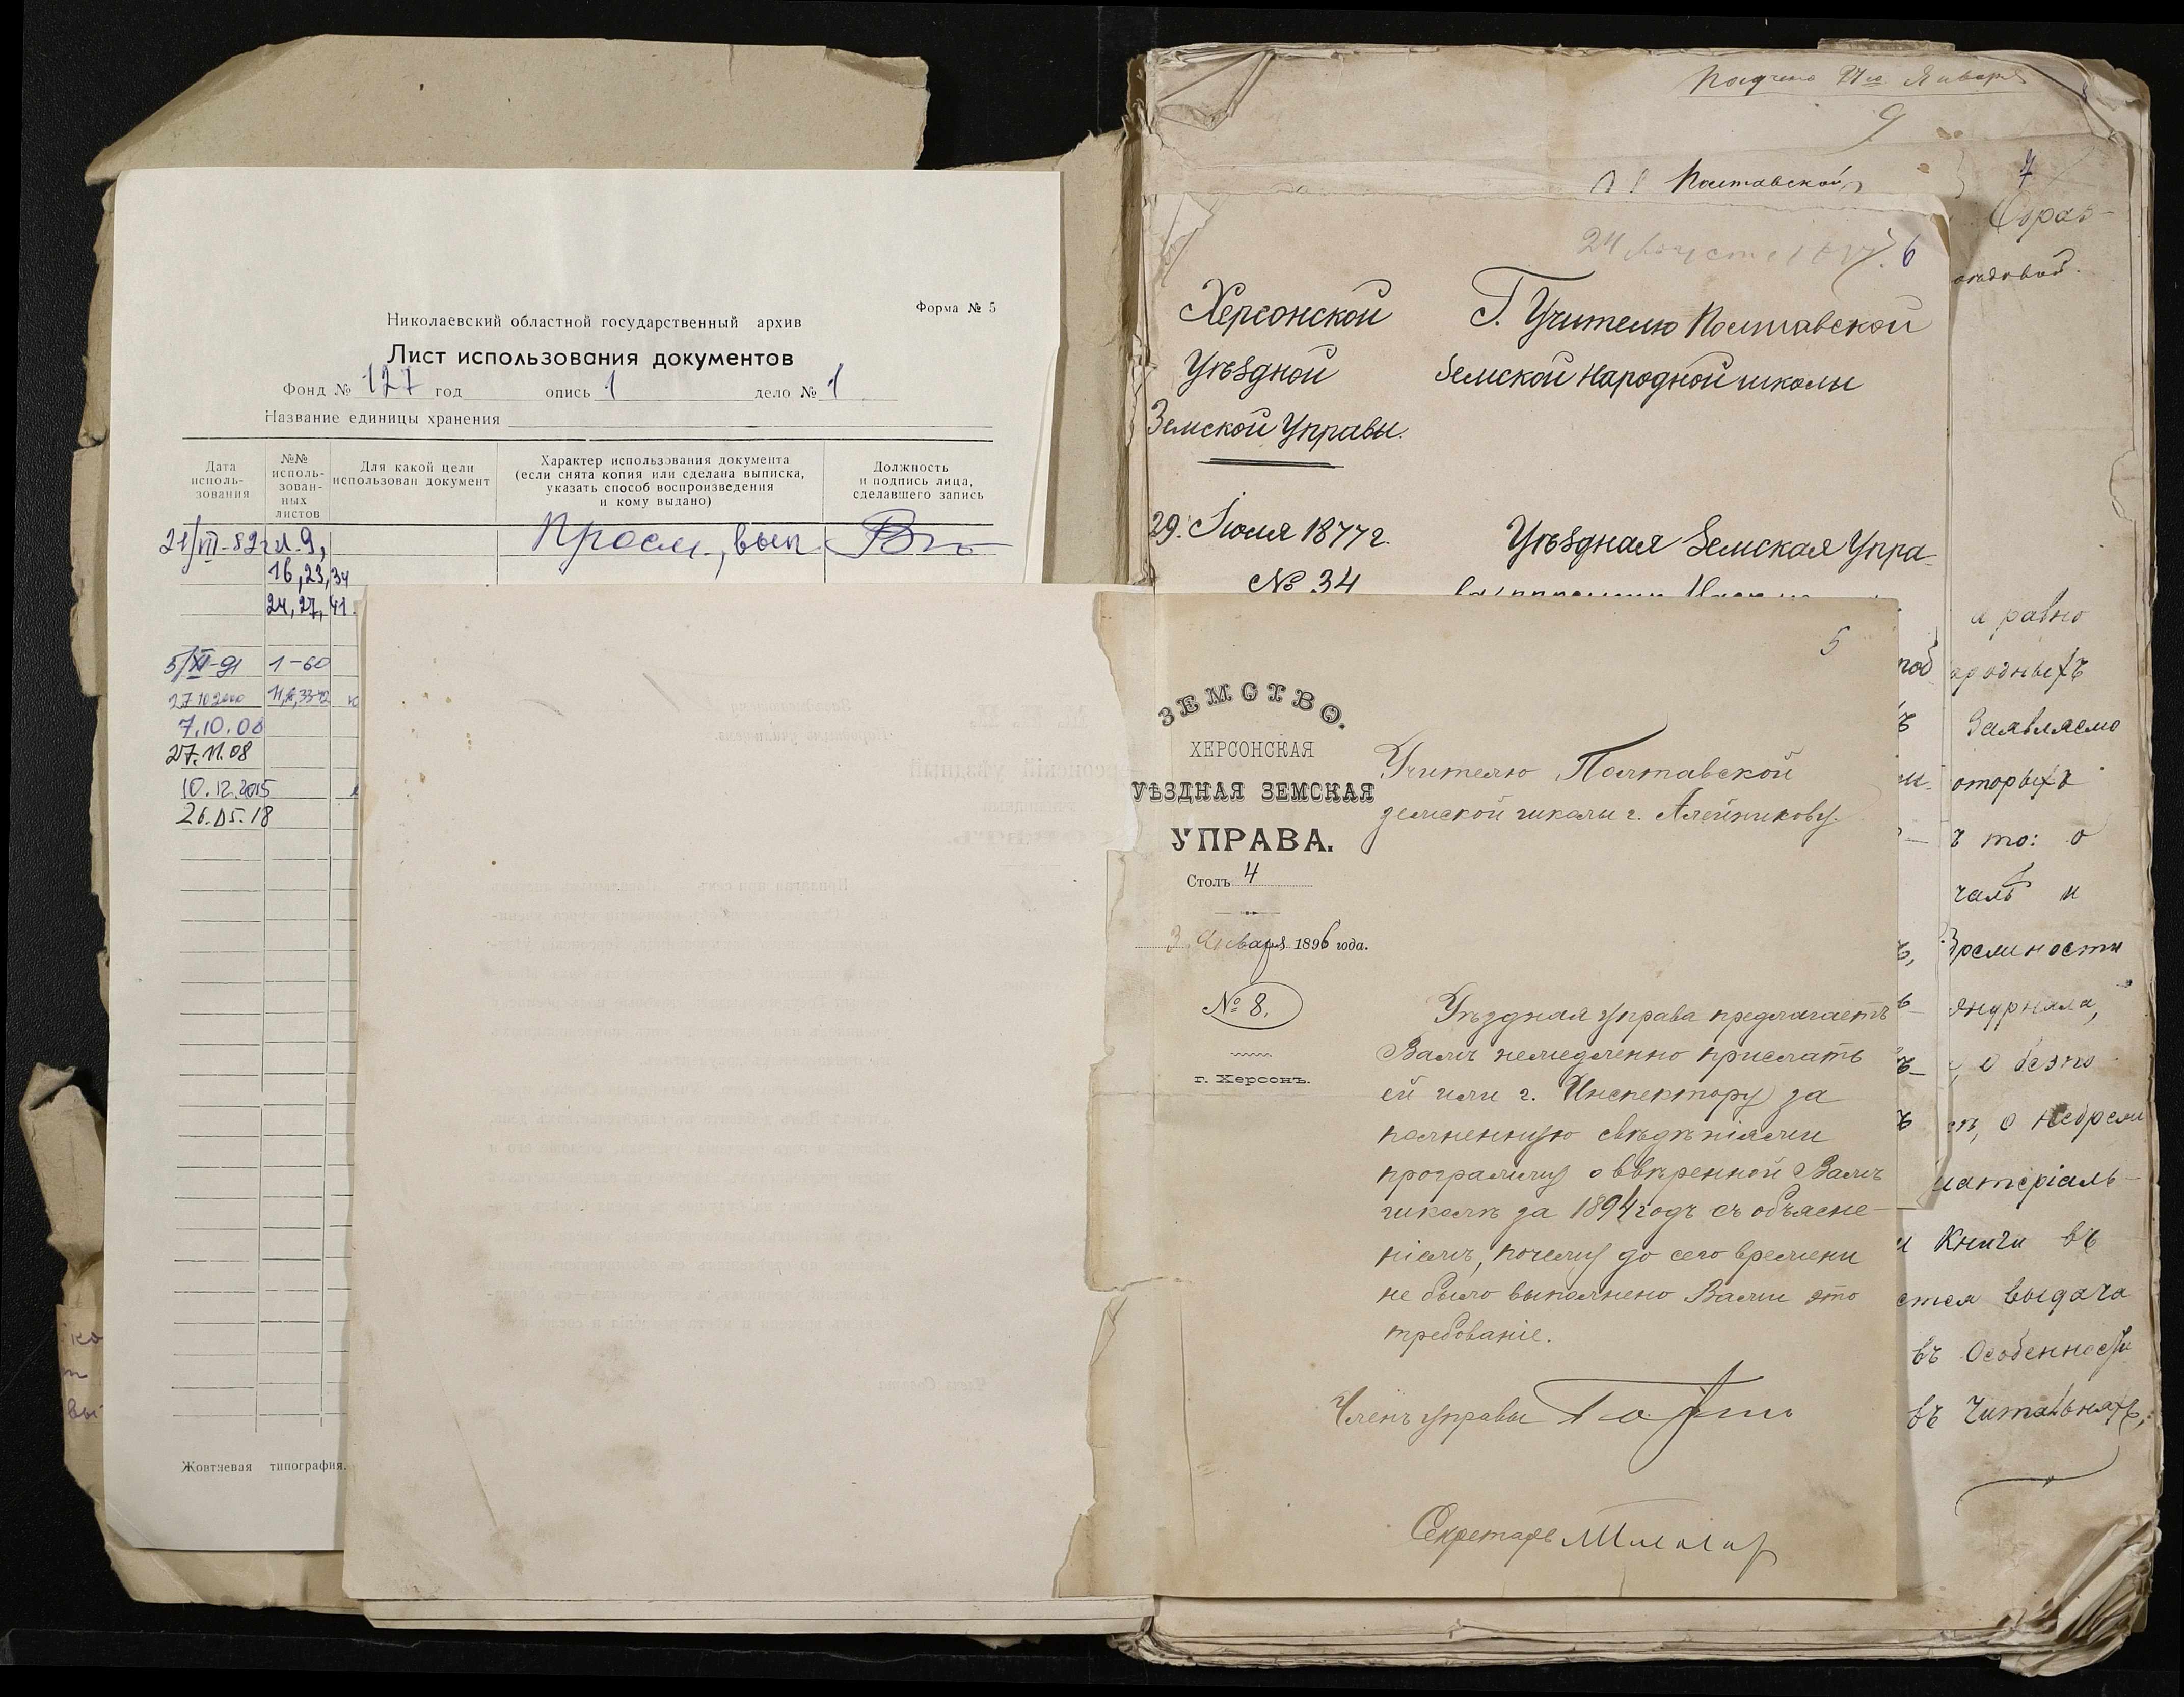 Форма № 5
Николаевский областной государственный архив
Лист использования документов
Фонд № 127 год опись 1 дело № 1
Название единицы хранения
Дата исполь-зования
№№ исполь-зован-ных листов
Для какой цели использован документ
Характер использования документа (если снята копия или сделана выписка, указать способ воспроизведения и кому выдано)
Должность и подпись лица, сделавшего запись
21/VII-82г л. 9, Просм., вып
16, 23, 34
24, 27, 41.
5/XI-91 1-60
27.10.2000
7.10.08
27.11.08
10.12.2015
26.05.18
Жовтневая типография.
Января
9
Полтавской
7
24 Августа
6
Херсонской
Уѣздной
Земской Управы.
29. Іюля 1877 г.
№ 34
Г. Учителю Полтавской
Земской Народной школы
Уѣздная Земская Упра-
5
ЗЕМСТВО.
ХЕРСОНСКАЯ
УѢЗДНАЯ ЗЕМСКАЯ
УПРАВА.
Столъ 4
3 Января 1896 года.
№ 8.
г. Херсонъ.
Учителю Полтавской
земской школы г. Алейникову.
Уѣздная управа предлагаетъ
Вамъ немедленно прислать
ей или г. Инспектору за
полненную свѣдѣніями
программу о ввѣренной Вамъ
школѣ за 1894 годъ съ объясне-
ніемъ, почему до сего времени
не было выполнено Вами это
требованіе.
Членъ управы
Секретарь
а равно
ародныхъ
Заявляемо
оторыхъ
ъ то: о
чалѣ и
журнала,
матеріаль-
и Книги въ
ется выдача
въ Особенности
въ Читальняхъ,